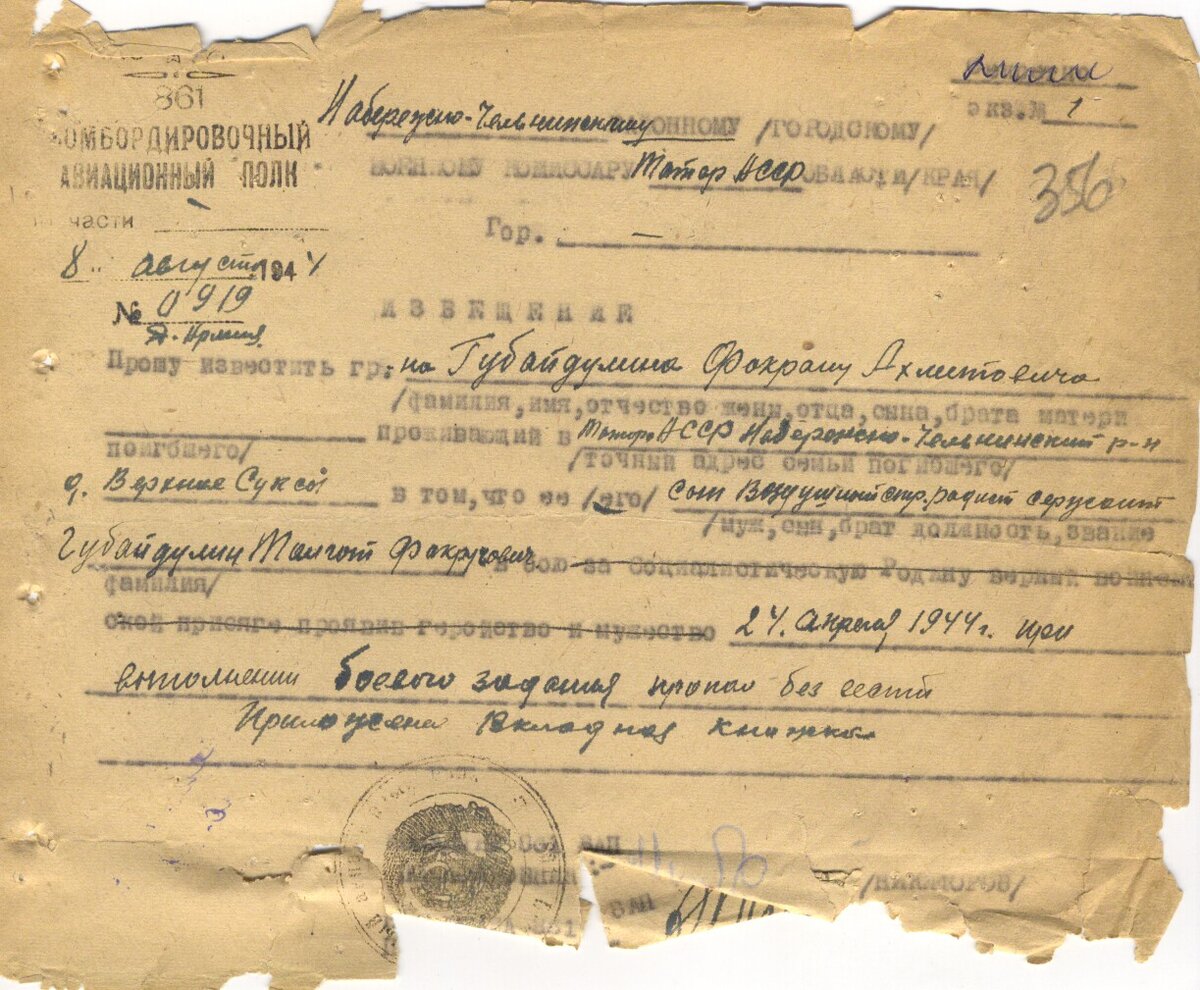 861
БОМБОРДИРОВОЧНЫЙ
АВИАЦИОННЫЙ ПОЛК
части
8 " август 1944
№ 0919
Д. Армия
экз.№ 1
Набережно-Челнинскому ОННОМУ /ГОРОДСКОМУ/
ВОЕННОМУ КОМИССАРУ Татар АССР ОБЛАСТИ/КРАЯ/
356
Гор. —
ИЗВЕЩЕНИЕ
Прошу известить гр: на Губайдулина Фахрану Ахметовича
/фамилия,имя,отчество жены,отца,сына,брата матери
проживающий в Татар АССР Набережно-Челнинский р-н
погибшего/ /точный адрес семьи погибшего/
д. Верхнее Суксы в том,что ее /его/ сын Воздушный стр. радист сержант
/муж,сын,брат должность,звание
Губайдулин Талгат Фахрутович в бою за Социалистическую Родину верный воинск
фамилия/
ской присяге проявив геройство и мужество 24. апреля 1944г. при
выполнении боевого задания пропал без вести
Приложена Вкладная книжка
/НИКИФОРОВ/